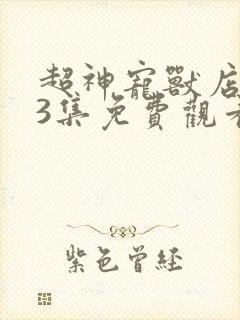 超神寵獸店
3集免費觀看
紫色曾經